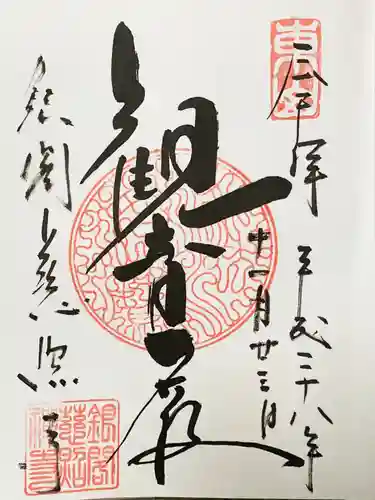 東山
奉拝
平成二十八年
十一月廿三日
観音殿
銀閣慈照寺
銀閣
慈照